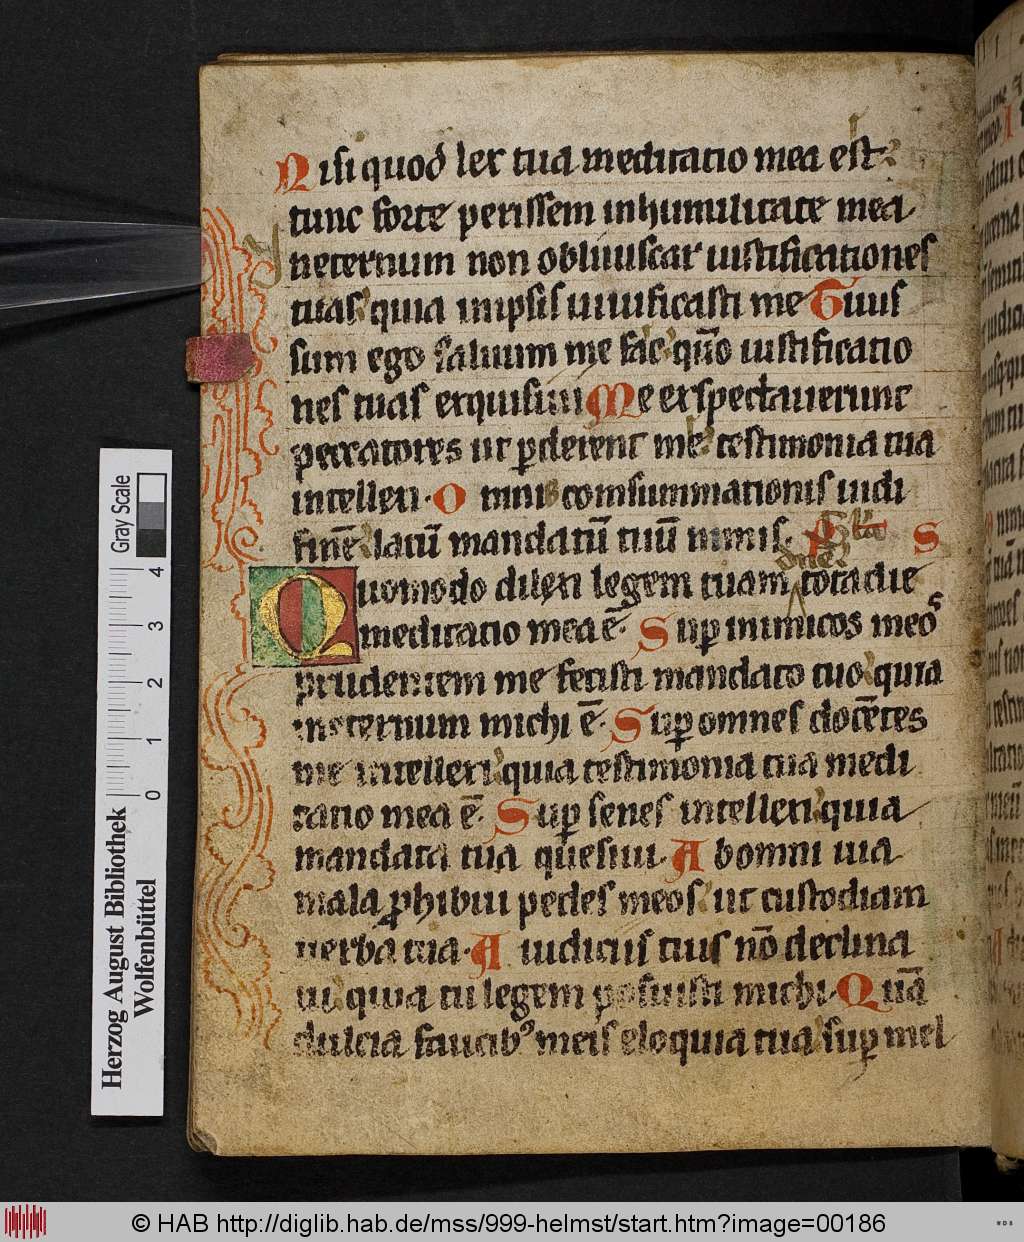 Nisi quod lex tua meditatio mea est
tunc forte perissem inhumilitate mea
Ineternum non obliuiscar iustificationes
tuas quia inipsis uiuificasti me Tuus
sum ego saluum me fac qm̄o iustificatio
nes tuas exquisiui Me exspectauerunt
peccatores ut ꝑderent me testimonia tua
intellexi. Omni consummationis uidi
finē latū mandatū tuū nimis. Ps
Quomodo dilexi legem tuam dne tota die
meditatio mea ē. Sup inimicos meos
prudentem me fecisti mandato tuo quia
ineternum michi ē. Sup omnes docētes
me intellexi quia testimonia tua medi
tatio mea ē. Sup senes intellexi quia
mandata tua quesiui. Abomni uia
mala ꝓhibui pedes meos ut custodiam
uerba tua. A iudiciis tuis nō declina
ui quia tu legem posuisti michi. Quā
dulcia faucibꝰ meis eloquia tua sup mel
Gray Scale
4
3
2
1
0
Herzog August Bibliothek
Wolfenbüttel
© HAB http://diglib.hab.de/mss/999-helmst/start.htm?image=00186